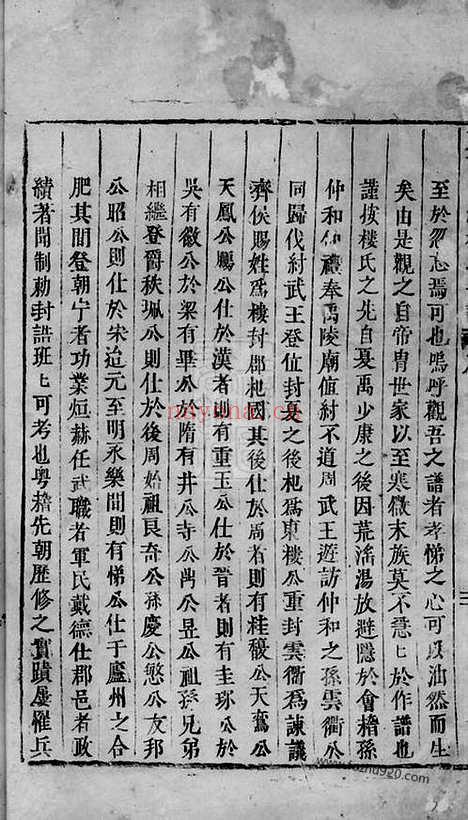 至於忽忘焉可也嗚呼觀吾之譜者孝悌之心可以油然而生
矣由是觀之自帝胄世家以至寒微末族莫不急〻於作譜也
謹按楼氏之先自夏禹少康之後因荒淫湯放避隱於會稽孫
仲和仙禮奉禹陵廟值紂不道周武王遊訪仲和之孫雲衢公
同歸伐紂武王登位封夏之後杞爲東樓公重封雲衢爲諫議
齊侯賜姓爲樓封郡杞國其後仕於周者則有桂馥公天鸞公
天鳳公賜公仕於漢者則有重玉公仕於晉者則有圭琢公於
吳有徽公於梁有畢公於隋有井公寺公尚公昱公祖孫兄弟
相繼登爵秩珮公則仕於後周始祖良奇公孫慶公憼公友邦
公昭公則仕於宋迨元至明永樂間則有悌公仕于廬州之合
肥其間登朝宁者功業烜赫任武職者軍民戴德仕郡邑者政
績著聞制勅封誥班〻可考也粵稽先朝歷修之實蹟屢罹兵
www.fozhu920.com